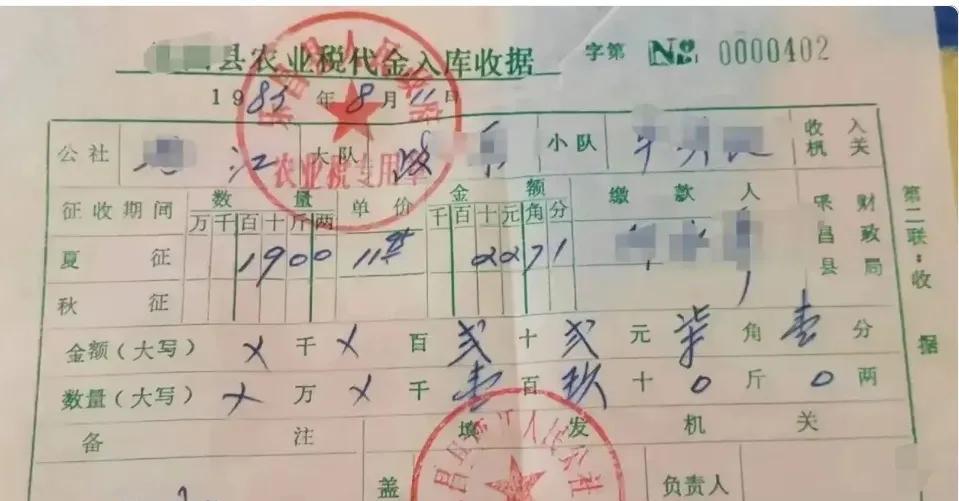 县农业税代金入库收据 字第 № 0000402
1985年8月11日
公社 江 大队 小队 收入机关
征收期间 数量 单价 金额 缴款人 乐昌县财政局
万千百十斤两 千百十元角分
夏征 1900 2271
秋征
金额(大写) ㄨ千ㄨ百贰十贰元柒角壹分
数量(大写) ㄨ万ㄨ千壹百玖十0斤0两
备注 填发机关
盖 负责人
第二联:收据
乐昌县人民政府
农业税专用章
人民公社